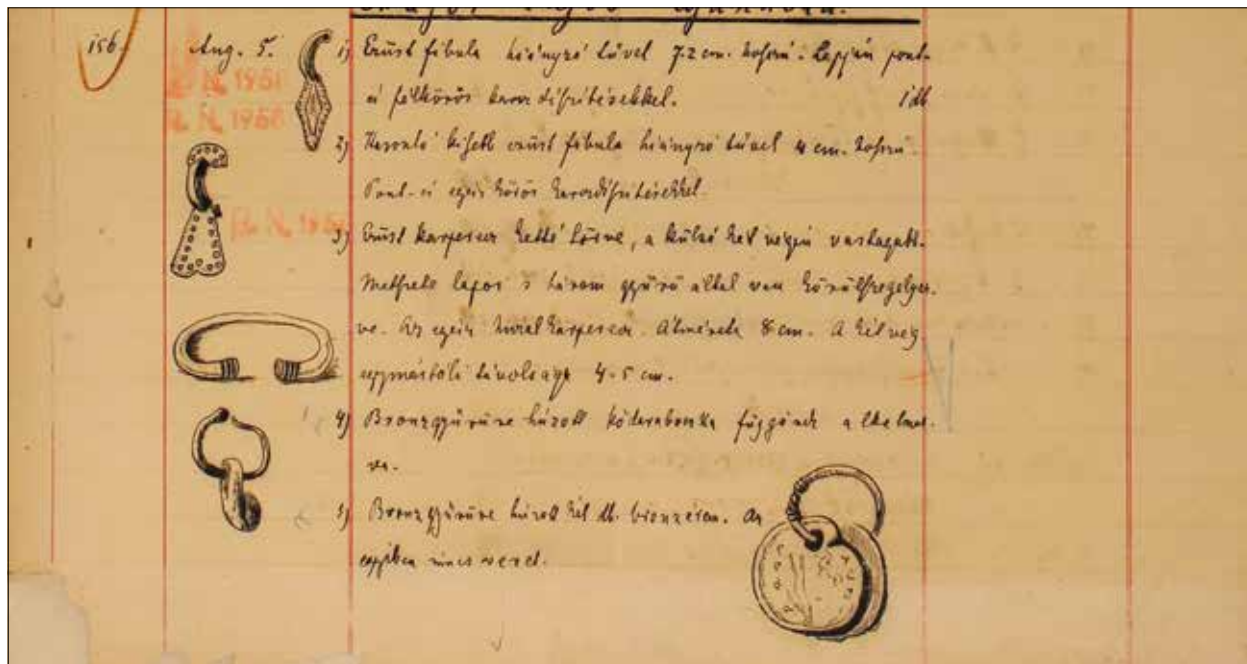 156. Aug. 5. 1) Ezüst fibula hiányzó tűvel 7.2 cm. hosszú. Lapján pont-
és félkörös karczdíszítésekkel. 1 db
R. N. 1951
R. N. 1950
2) Hasonló kisebb ezüst fibula hiányzó tűvel 4 cm. hosszú.
Pont- és egész körös karczdíszítésekkel.
R. N. 195
3) Ezüst karperecz ketté törve, a külső két végén vastagabb.
Metszete lapos s három gyűrű által van
ve. Az egyik karperecz. Átmérete 8 cm. A két vég
egymástóli távolsága 4.5 cm.
4) Bronzgyűrűre húzott kődarabocska függőnek alkalmaz-
va.
5) Bronzgyűrűre húzott két db. bronzérem. Az
egyikben nincs veret.